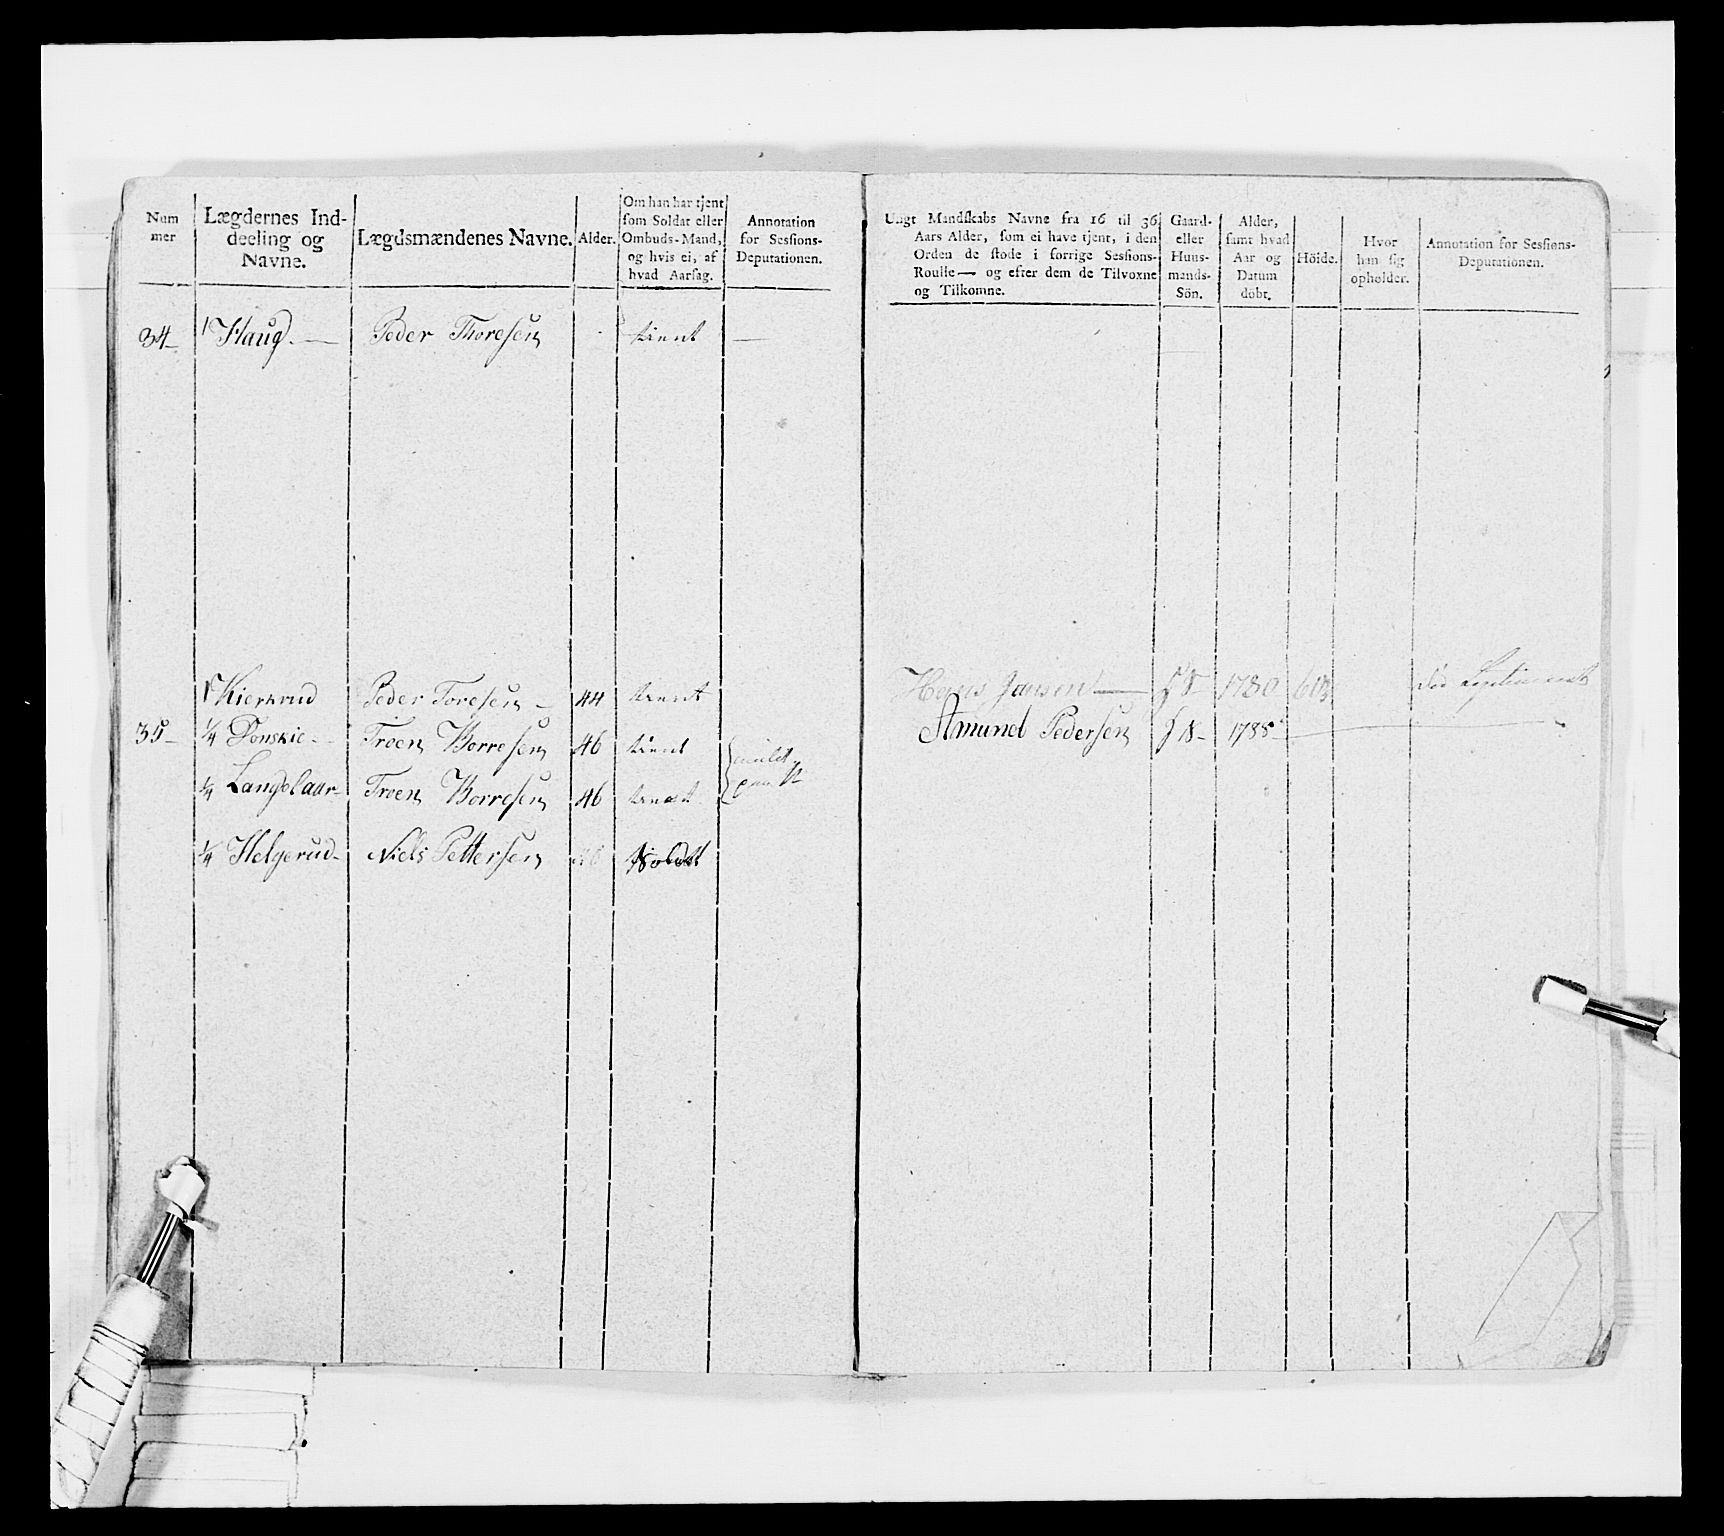 Num
mer
Lægdernes Ind-
deeling og
Navne.
Lægdsmændenes Navne.
Alder.
Om han har tjent
som Soldat eller
Ombuds-Mand,
og hvis ei, af
hvad Aarsag.
Annotation
for Sessions-
Deputationen.
Ungt Mandskabs Navne fra 16 til 36
Aars Alder, som ei have tjent, i den
Orden de stode i forrige Sessions-
Roulle — og efter dem de Tilvoxne
og Tilkomne.
Gaard-
eller
Huus-
mands-
Sön.
Alder,
samt hvad
Aar og
Datum
döbt.
Höide.
Hvor
han sig
opholder.
Annotation for Sessions-
Deputationen.
34 1 Haug Peder Thoresen tient —
1 Peder Toresen 44 tient Hans Jansen 1780
35 1/4 Donskie Troen Borresen 46 tient Amund Pedersen 1788
1/4 Troen Borresen 46 tient
1/4 Helgerud Niels Pettersen